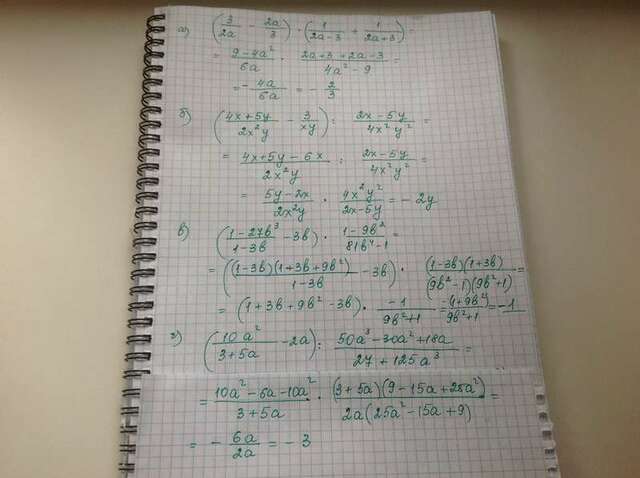 а) (3/2a − 2a/3) · (1/2a−3 + 1/2a+3) =
= 9−4a²/6a · 2a+3+2a−3/4a²−9 =
= −4a/6a = −2/3
б) (4x+5y/2x²y − 3/xy) : 2x−5y/4x²y² =
= 4x+5y−6x/2x²y : 2x−5y/4x²y² =
= 5y−2x/2x²y · 4x²y²/2x−5y = −2y
в) (1−27b³/1−3b − 3b) · 1−9b²/81b⁴−1 =
= ((1−3b)(1+3b+9b²)/1−3b − 3b) · (1−3b)(1+3b)/(9b²−1)(9b²+1) =
= (1+3b+9b²−3b) · −1/9b²+1 = −(1+9b²)/9b²+1 = −1
г) (10a²/3+5a − 2a) : 50a³−30a²+18a/27+125a³ =
= 10a²−6a−10a²/3+5a · (3+5a)(9−15a+25a²)/2a(25a²−15a+9) =
= −6a/2a = −3